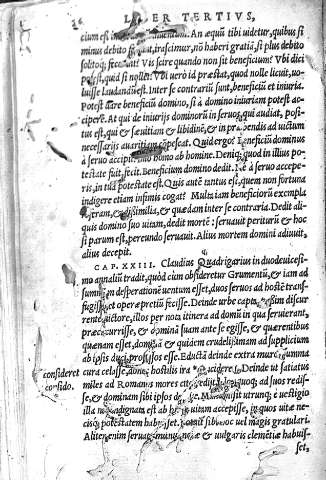 LIBER TERTIVS,
cium est in
An æquū tibi uidetur, quibus si
minus debito
irascimur, nō haberi gratiā, si plus debito
solitoq; fecerāt? Vis scire quando non sit beneficium? Vbi dici
potest, quid si nollet? Vbi uerò id præstat, quod nolle licuit, uo-
luisse laudandū est. Inter se contraria sunt, beneficiū et iniuria.
Potest dare beneficiū domino, si à domino iniuriam potest ac-
cipere. At qui de iniurijs dominorū in seruos qui audiat, posi-
tus est, qui & sæuitiam & libidinē, & in præbendis ad uictum
necessarijs auaritiam cōpescat. Quid ergo? Beneficiū dominus
à seruo accipit? Imo homo ab homine. Deniq; quod in illius po-
testate fuit, fecit. Beneficium domino dedit. Ne à seruo accepe-
ris, in tua potestate est. Quis autē tantus est, quem non fortuna
indigere etiam infimis cogat? Multa iam beneficiorū exempla
referam, & dissimilia, & quædam inter se contraria. Dedit ali-
quis domino suo uitam, dedit mortē: seruauit periturū & hoc
si parum est, pereundo seruauit. Alius mortem domini adiuuit,
alius decepit.
CAP. XXIII. Claudius Quadrigarius in duodeuicesi-
mo annaliū tradit, quòd cùm obsideretur Grumentū, & iam ad
summam desperationē uentum esset, duos seruos ad hostē trans-
fugisse, et operæpretiū fecisse. Deinde urbe capta, passim discur
rente uictore, illos per nota itinera ad domū in qua seruierant,
præcucurrisse, & dominā suam ante se egisse, & quærentibus
quænam esset, dominā & quidem crudelissimam ad supplicium
ab ipsis duci professos esse. Eductā deinde extra muros summa
cura celasse, donec hostilis ira
cideret. Deinde ut satiatus
miles ad Romanos mores
redijt, illos quoq; ad suos redis-
se, & dominam sibi ipsos
Manumisit utrunq; è uestigio
illa, nec indignata est ab his uitam accepisse, in quos uitæ ne-
cisq; potestatem habuisset. Potuit sibi hoc uel magis gratulari.
Aliter enim seruata, munus notæ & uulgaris clemētiæ habuis-
set,
consideret
considŏ.